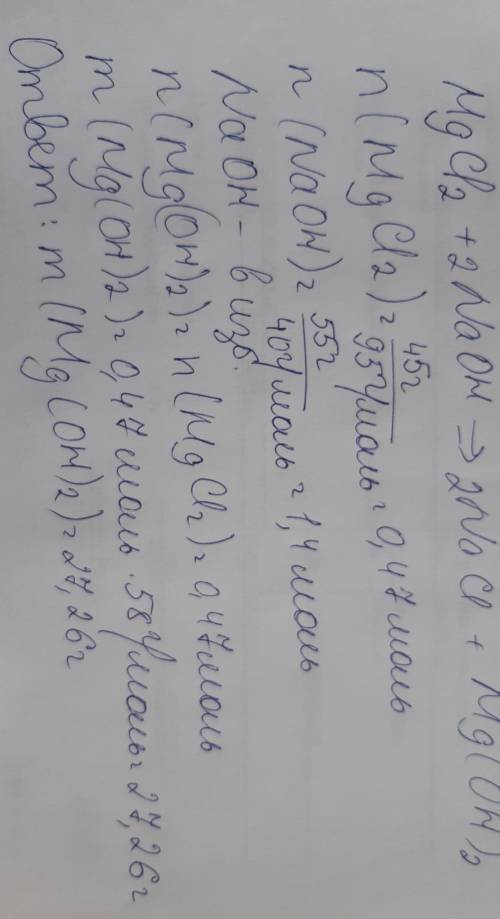 MgCl2 + 2NaOH => 2NaCl + Mg(OH)2
n(MgCl2) = 45г / 95г/моль = 0,47 моль
n(NaOH) = 55г / 40г/моль = 1,4 моль
NaOH - в изб.
n(Mg(OH)2) = n(MgCl2) = 0,47 моль
m(Mg(OH)2) = 0,47 моль · 58г/моль = 27,26г
Ответ: m(Mg(OH)2) = 27,26г